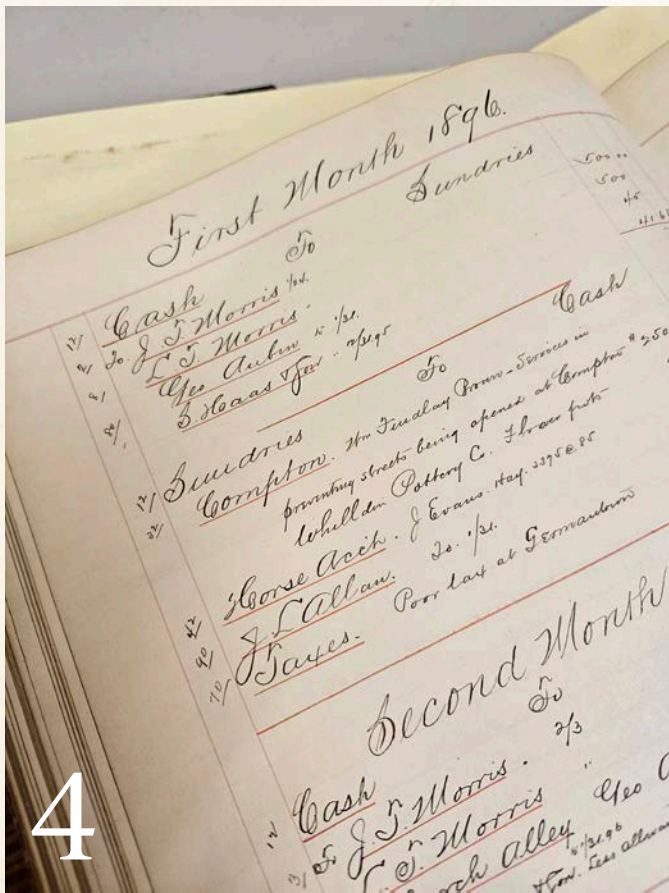 First Month 1896.
Cash To Sundries 500
12/ 500
2/ To J. T. Morris 45
L. T. Morris.
8/ Geo Aubin
S. Haas & Son
Sundries To Cash
12/ Compton. Wm Findlay Brown - Services in
preventing streets being opened at Compton $250
Whilldin Pottery Co. Flower pots
42/ Horse Acct. J Evans. Hay. 3395 @ .85
90/ J L Allan. Do. 1/31.
70/ Taxes. Poor tax at Germantown
Second Month
Cash To
12 To J. T. Morris. 2/3
3/ L. T. Morris "
Alley Geo
Less
4